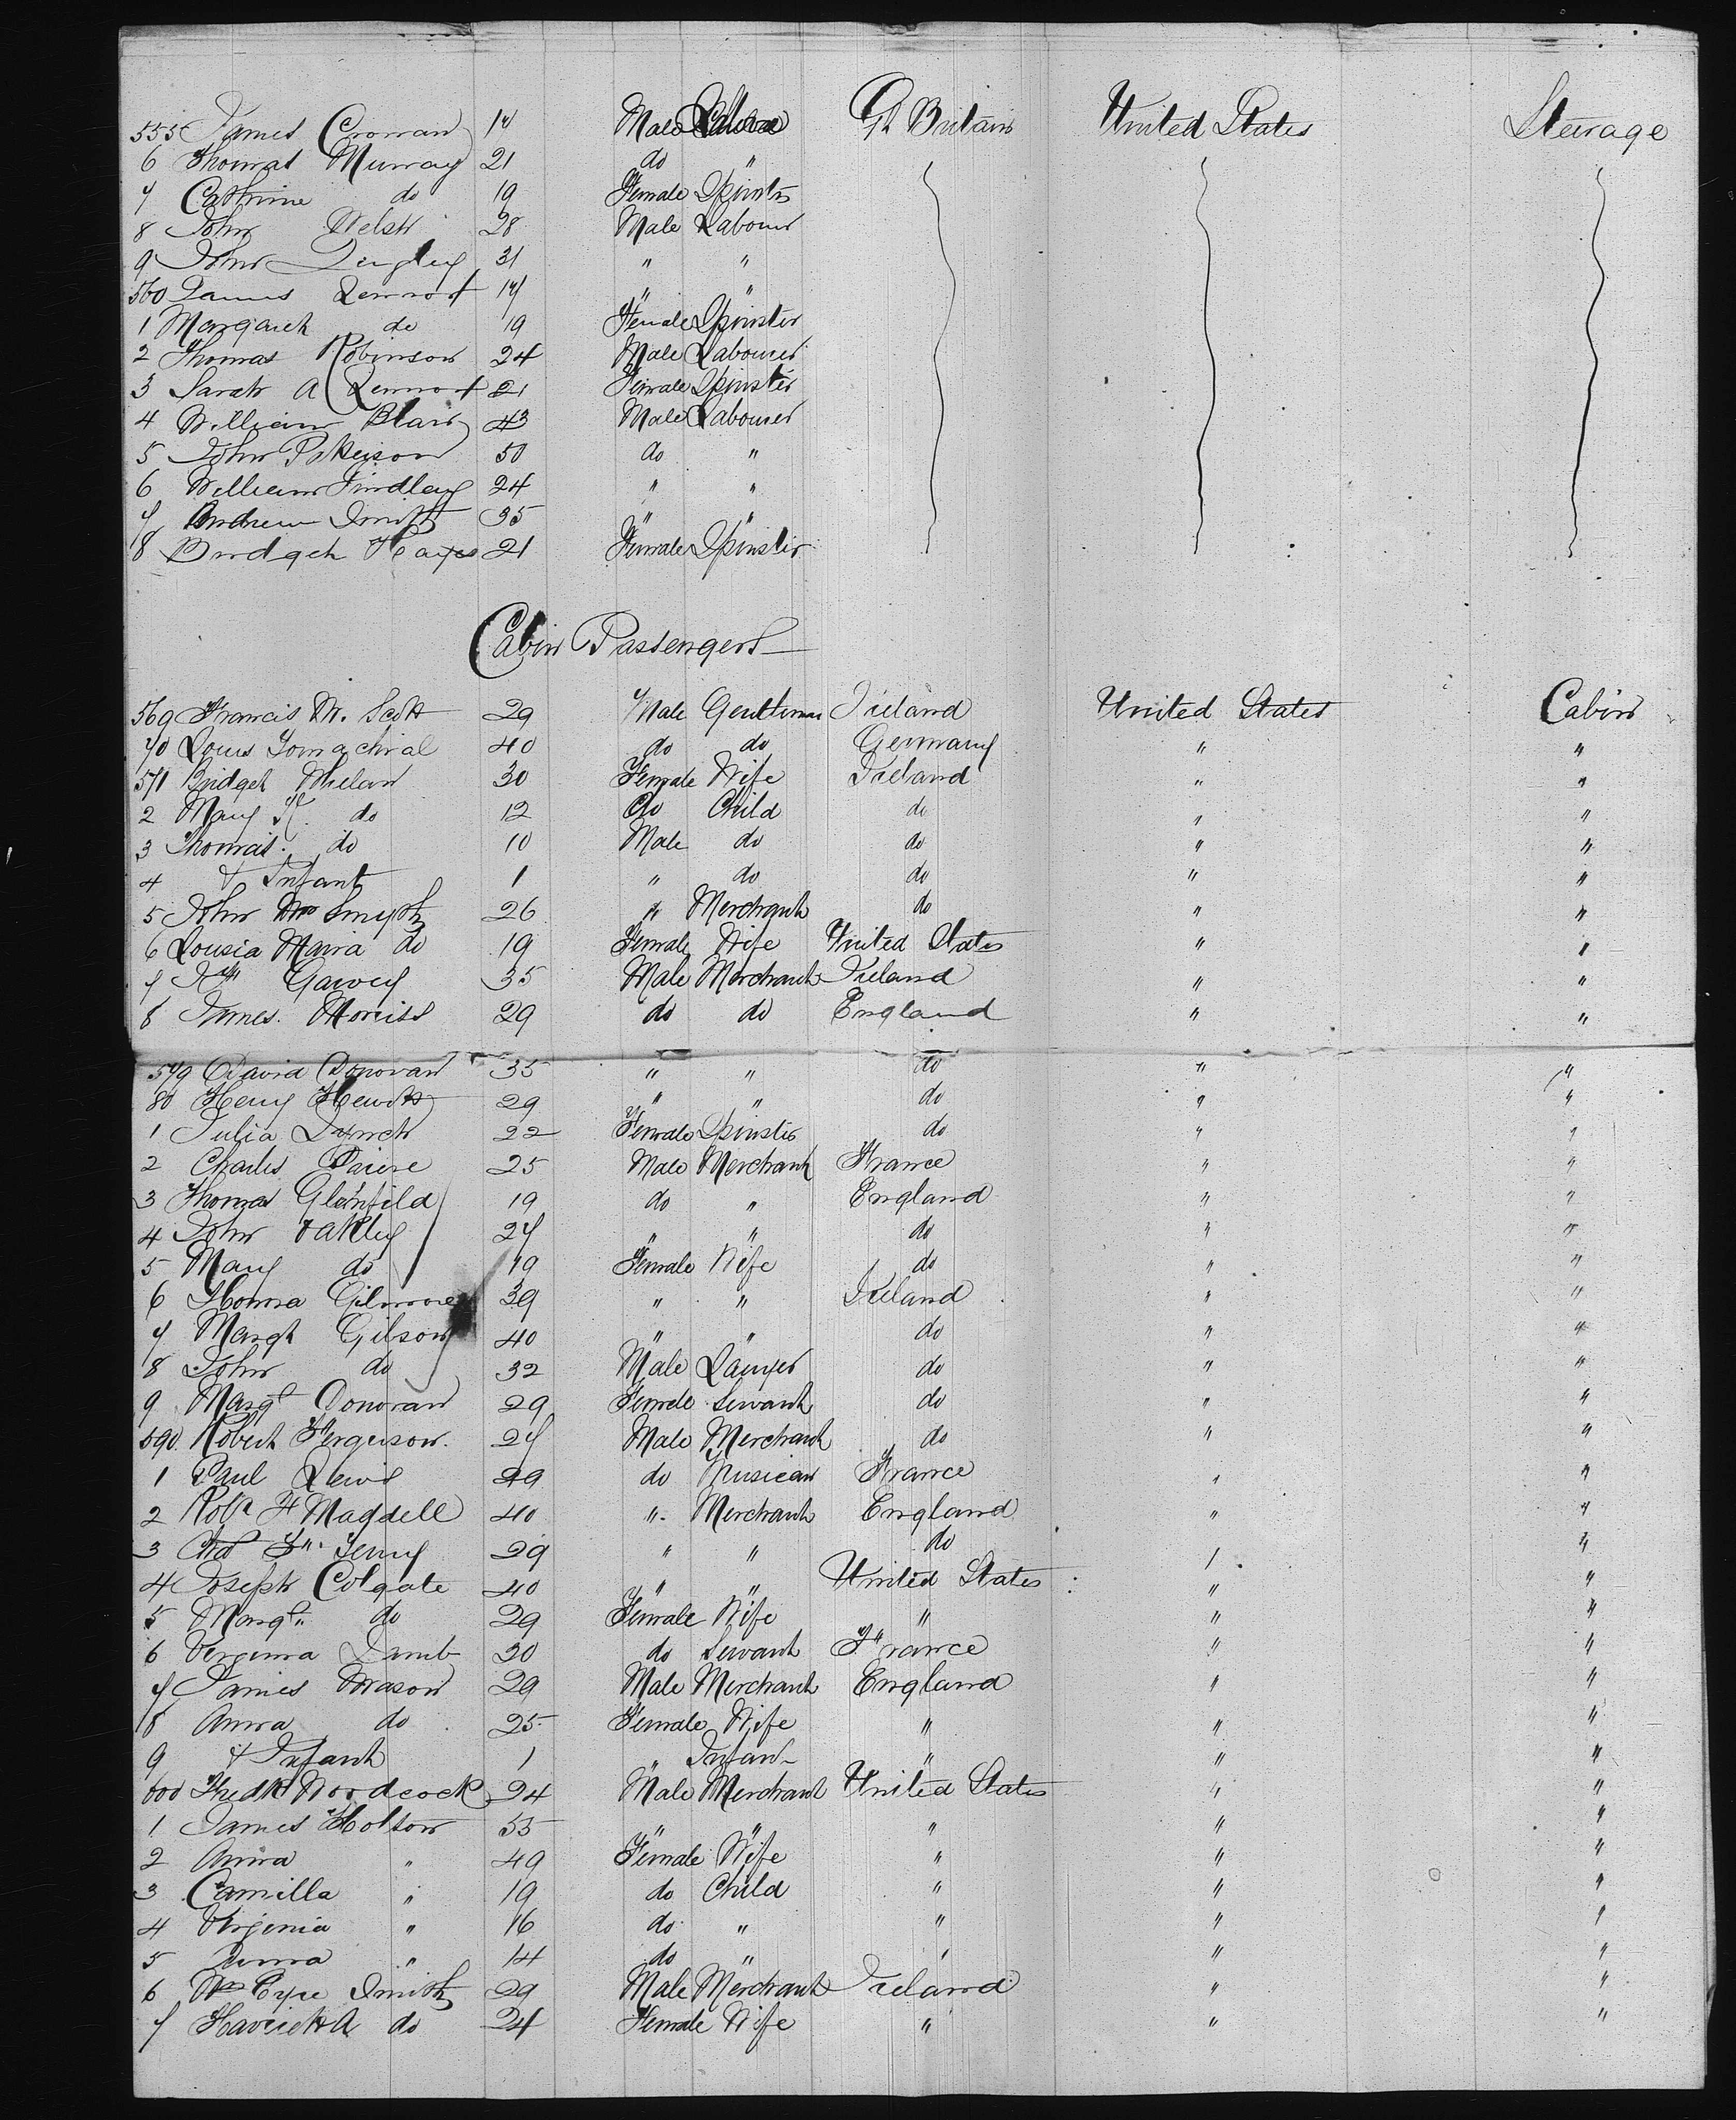 555 James Cronan 14 Male Gt Britain United States Steerage
6 Thomas Murray 21 do "
7 Cathrine do 19 Female Spinstr
8 John Welsh 28 Male Labour
9 John 31 " "
560 James Lennox 14 " "
1 Margaret do 19 Female Spinster
2 Thomas Robinson 24 Male Labourer
3 Sarah A Lennox 21 Female Spinster
4 William Blair 43 Male Labourer
5 John Paterson 50 do "
6 William Findlay 24 " "
7 Andrew Smith 35 " "
8 Bridget Hayes 21 Female Spinster
Cabin Passengers
569 Francis M. Scott 29 Male Gentleman Ireland United States Cabin
70 Louis 40 do do Germany " "
571 Bridget Whelan 30 Female Wife Ireland " "
2 Mary K. do 12 do Child do " "
3 Thomas do 10 Male do do " "
4 & Infant 1 " do do " "
5 John Wm Smyth 26 " Merchant do " "
6 Lousia Maria do 19 Female Wife United States " "
7 Garvey 35 Male Merchant Ireland " "
8 James Morriss 29 do do England " "
579 David Donovan 35 " " do " "
80 Henry Hewitt 29 " " do " "
1 Julia Lynch 22 Female Spinster do " "
2 Charles 25 Male Merchant France " "
3 Thomas Glenfild 19 do " England " "
4 John Oakley 27 " " do " "
5 Mary do 19 Female Wife do " "
6 Gilmore 39 " " Ireland " "
7 Margt Gibson 40 " " do " "
8 John do 32 Male Lawyer do " "
9 Margt Donovan 29 Female Servant do " "
590 Robert Ferguson 27 Male Merchant do " "
1 Paul Lewis 29 do Musican France " "
2 Robt H Maddell 40 " Merchant England " "
3 Chas 29 " " do " "
4 Joseph Colgate 40 " " United States " "
5 Margt do 29 Female Wife " " "
6 Virginia Lamb 30 do Servant France " "
7 James Mason 29 Male Merchant England " "
8 Anna do 25 Female Wife " " "
9 & Infant 1 " Infant " " "
600 Fredk Woodcock 24 Male Merchant United States " "
1 James Holton 55 " " " " "
2 Anna " 49 Female Wife " " "
3 Camilla " 19 do Child " " "
4 Virginia " 16 do " " " "
5 Anna " 14 do " " " "
6 Wm Smith 29 Male Merchant Ireland " "
7 do 24 Female Wife " " "